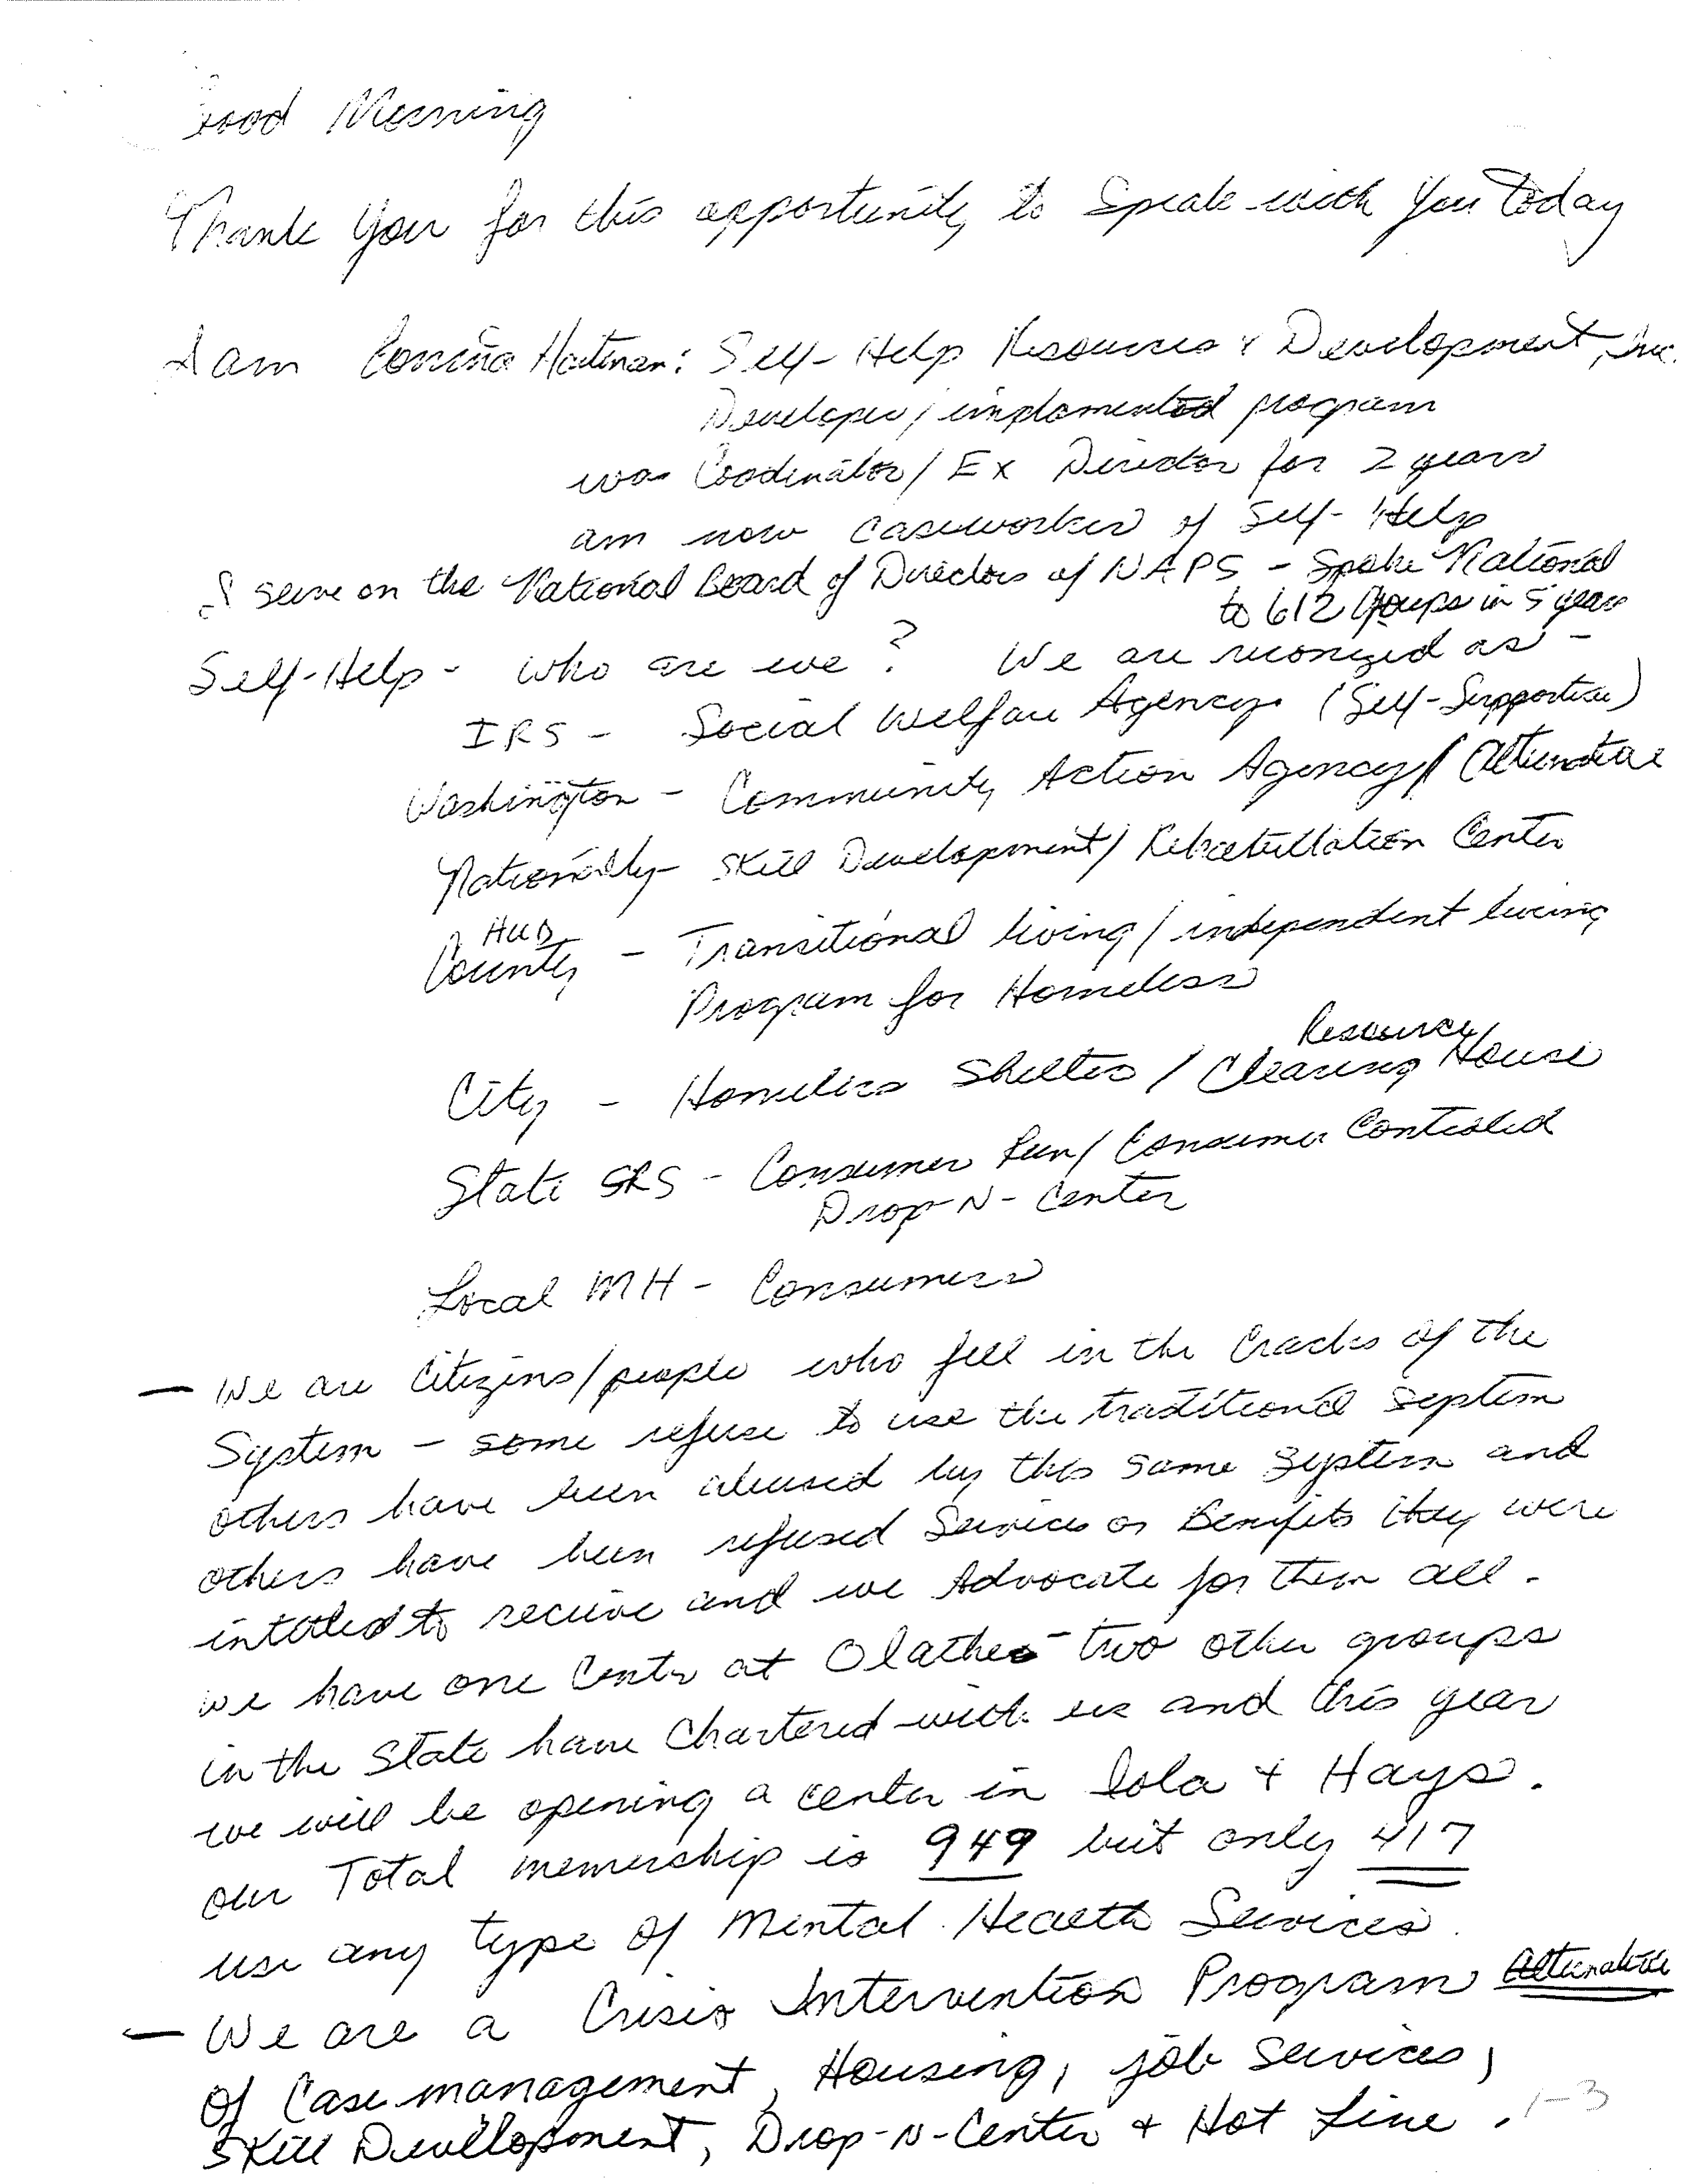 Good Morning
Thank You for this opportunity to Speak with You Today
I am Hartman: Self-Help Resources & Development, Inc.
Developer / implemented program
was Coodinator / Ex Director for 2 years
am now caseworker of Self-Help
I serve on the National Board of Directors of NAPS - Spoke National
to 612 Groups in 5 years
Self-Help - who are we? We are reconized as -
IRS - Social Welfare Agency. (Self-Supportive)
Washington - Community Action Agency / Alternative
Nationally - Skill Development / Center
HUD
County - Transitional living / independent living
Program for Homeless
Resource
City - Homeless Shelter / Clearing House
State SRS - Consumer Run / Consumer Controled
Drop-N-Center
Local MH - Consumers
— We are Citizens / people who fell in the Cracks of the
System - some refuse to use the traditional System
others have been abused by this same System and
others have been refused Services or Benifits they were
intitled to recieve and we Advocate for them all.
we have one Center at Olathe - two other groups
in the State have Chartered with us and this year
we will be opening a center in Iola & Hays.
our Total memership is 949 but only 417
use any type of Mental Health Services.
— We are a Crisis Intervention Program Alternative
of Case management, Housing, job Services,
Skill Development, Drop-N-Center & Hot Line.
1-3